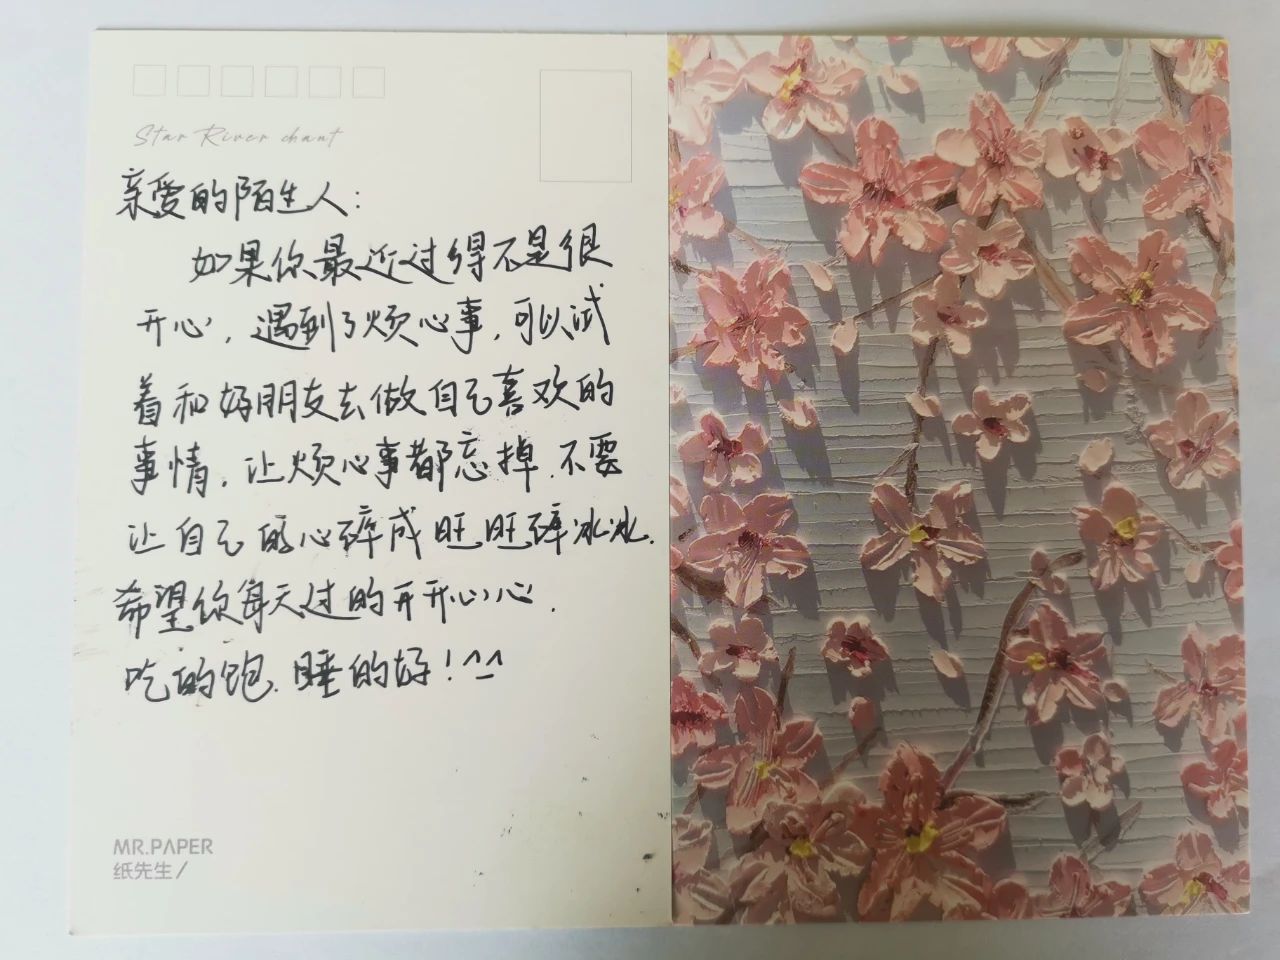 Star River chant
亲爱的陌生人：
如果你最近过得不是很
开心，遇到了烦心事，可以试
着和好朋友去做自己喜欢的
事情，让烦心事都忘掉，不要
让自己的心碎成旺旺碎冰冰．
希望你每天过的开开心心．
吃的饱．睡的好！^_^
MR.PAPER
纸先生/